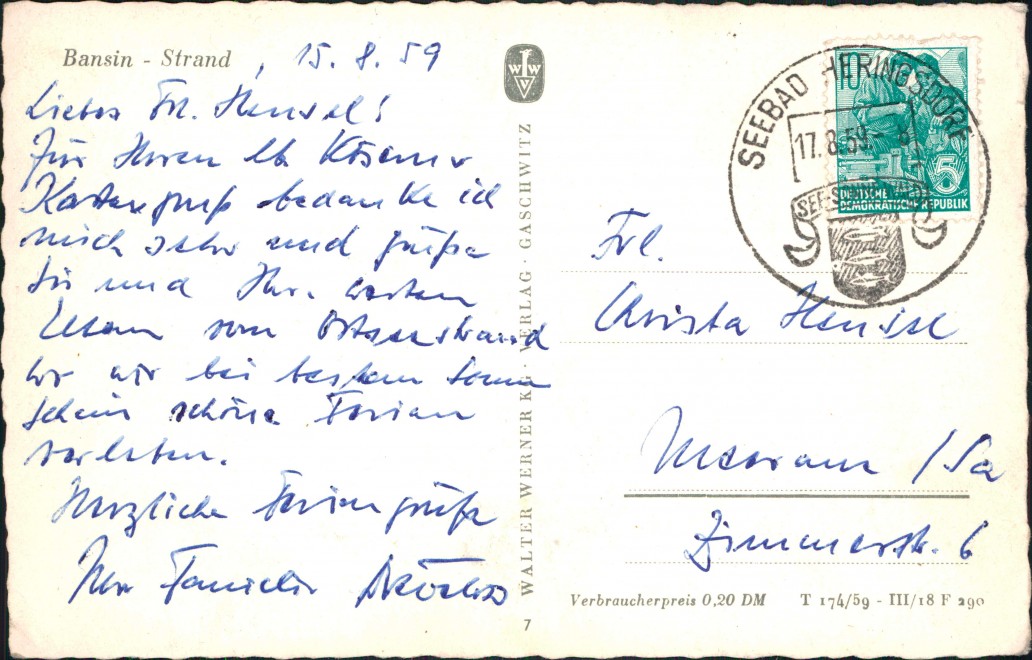 Bansin - Strand, 15.8.59
Liebes Frl. Hensel!
Für Ihren lb. Kösener
Kartengruß bedanke ich
mich sehr und grüße
Sie und Ihre werten
Eltern vom Ostseestrand
wo wir bei bestem Sonnen
schein schöne Ferien
verleben.
Herzliche Feriengrüße
Ihre Familie
WALTER WERNER KG · VERLAG · GASCHWITZ
7
W W V
SEEBAD HERINGSDORF
17.8.59.- 8
10
5
DEUTSCHE
DEMOKRATISCHE REPUBLIK
Frl.
Christa Hensel
Meerane /Sa
Zimmerstr. 6
Verbraucherpreis 0,20 DM T 174/59 - III/18 F 290